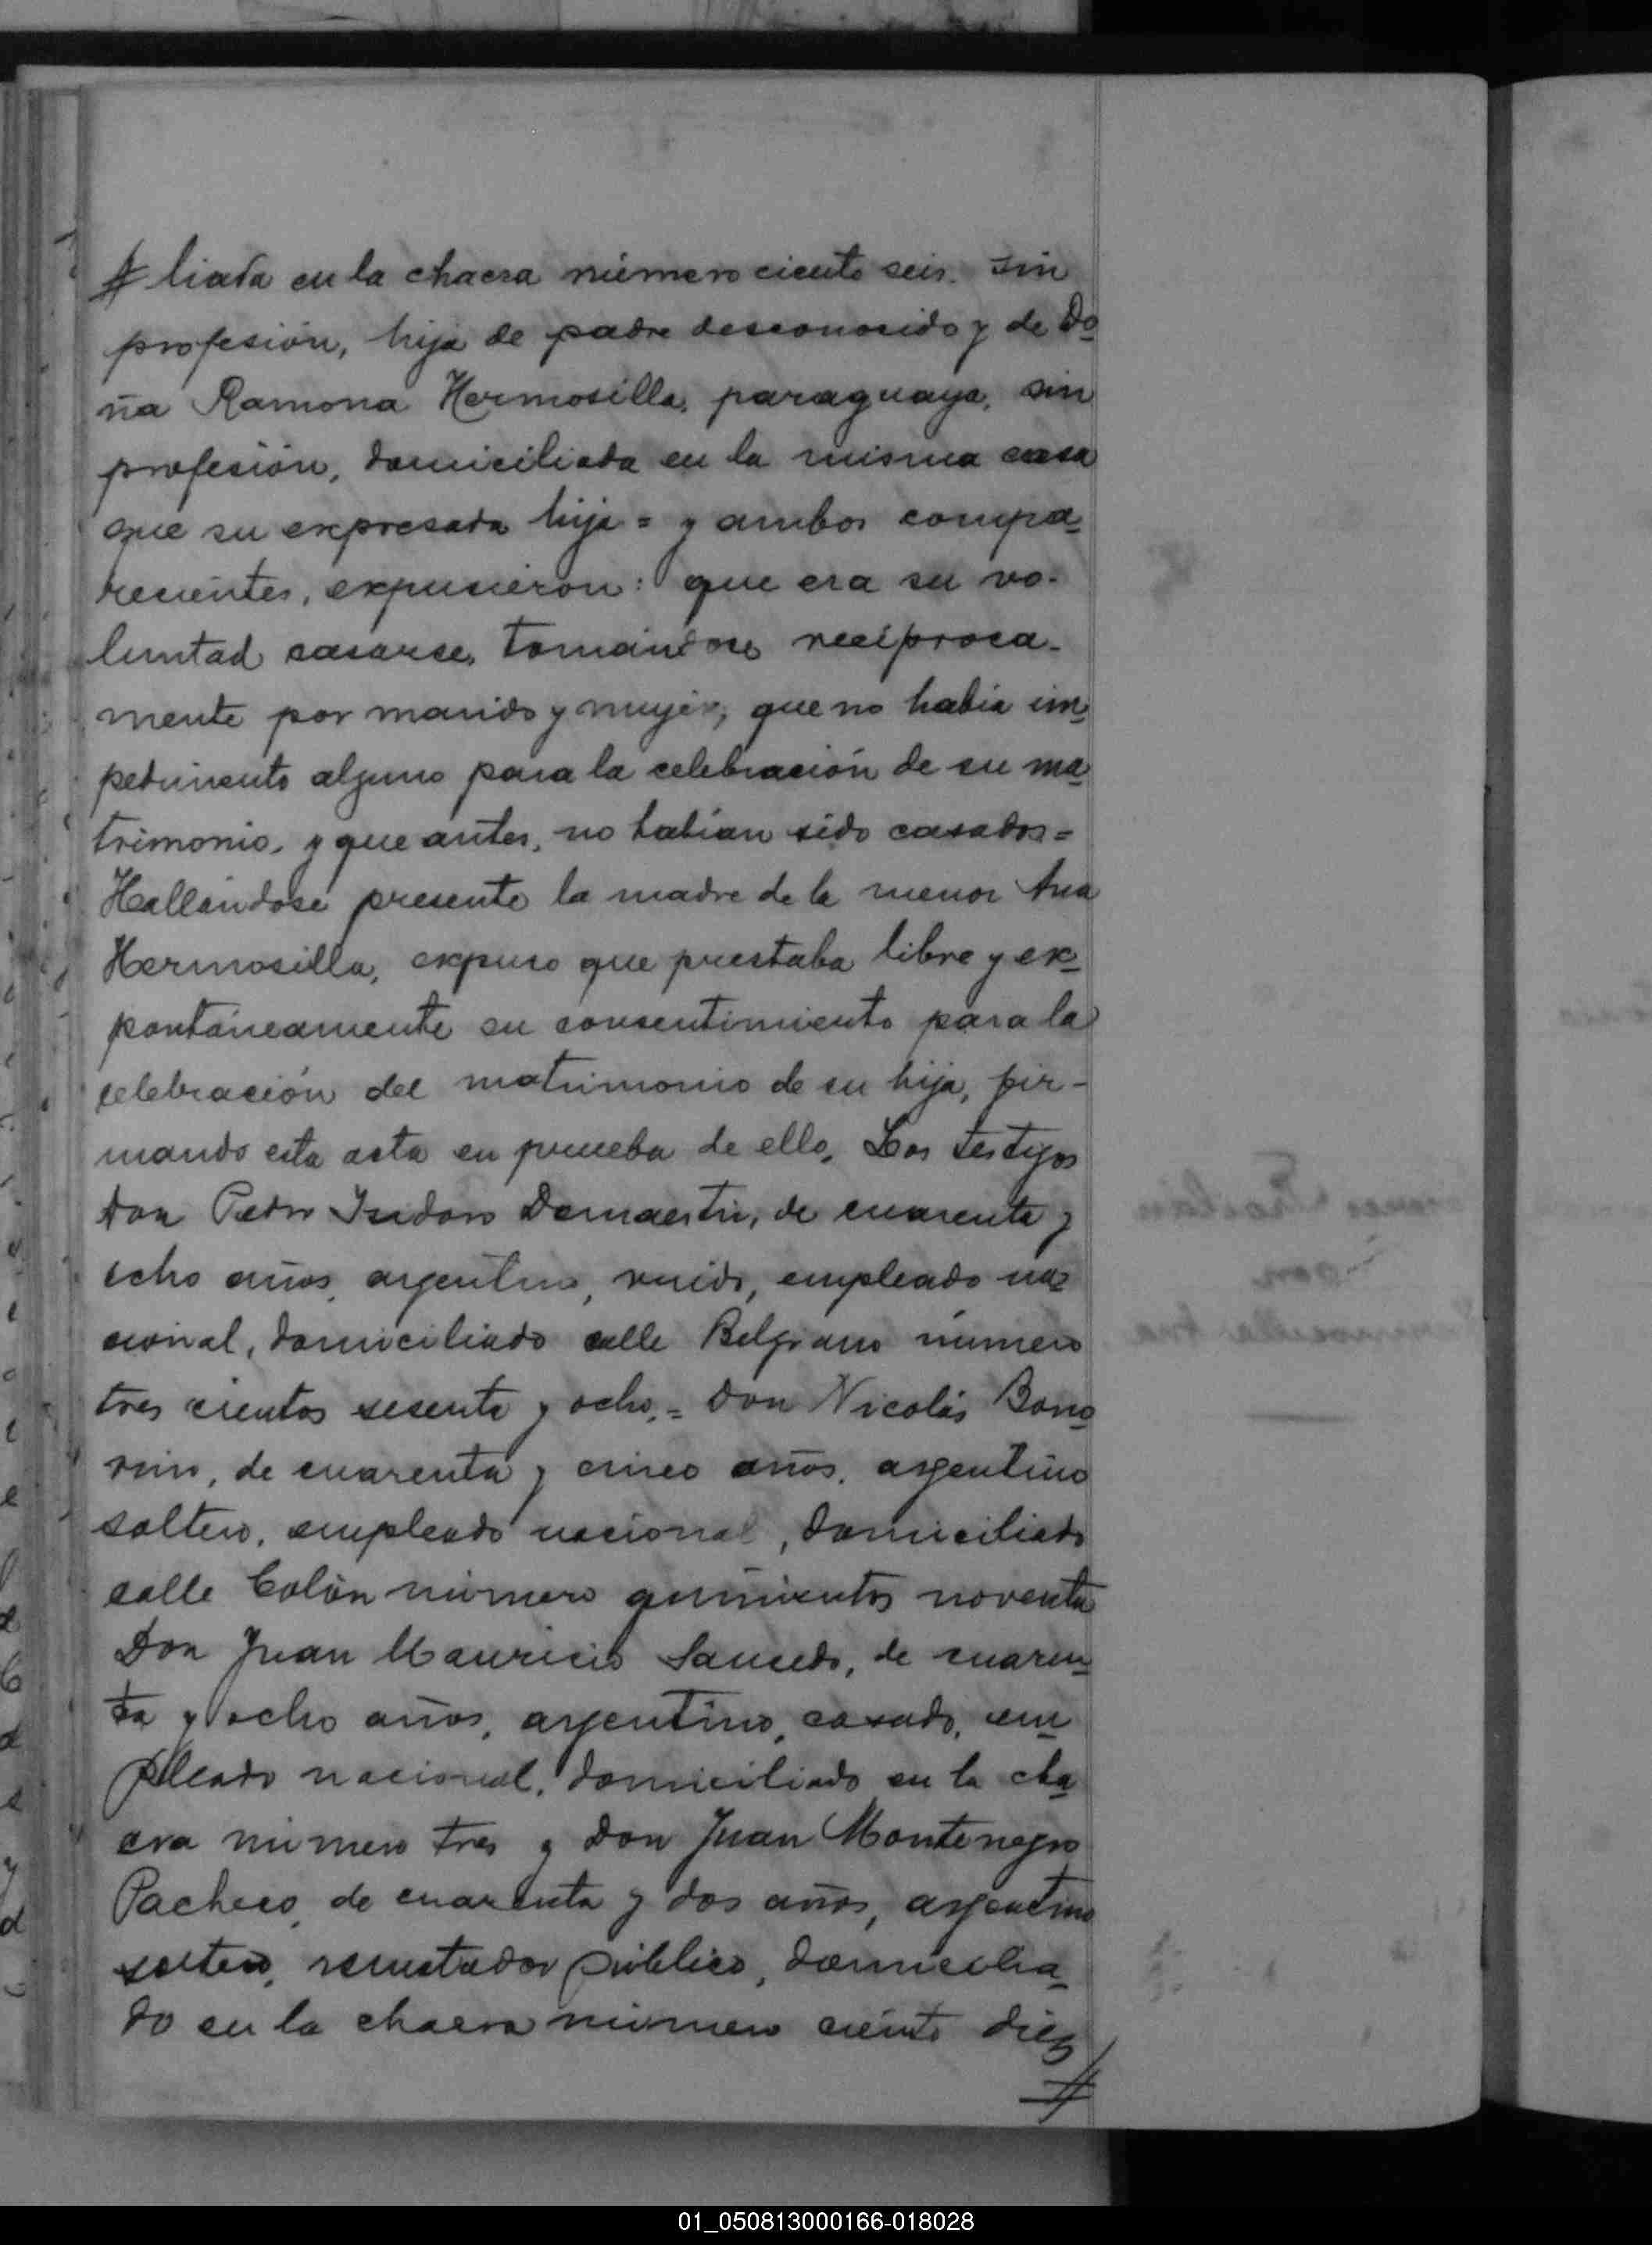 # liada en la chacra número ciento seis. sin
profesión, hija de padre desconosido y de Do
ña Ramona Hermosilla, paraguaya, sin
profesión, domiciliada en la misma casa
que su expresada hija = y ambos compa-
recientes, expusieron: que era su vo-
luntad casarse, tomándose recíproca-
mente por marido y mujer; que no habia im-
pedimento alguno para la celebración de su ma-
trimonio, y que antes, no habian sido casados =
Hallándose presente la madre de la menor Ana
Hermosilla, expuso que prestaba libre y ex-
pontáneamente su consentimiento para la
celebración del matrimonio de su hija, fir-
mando esta acta en prueba de ello. Los testigos
don Pedro Isidoro Demaestri, de cuarenta y
ocho años, argentino, viudo, empleado na-
cional, domiciliado calle Belgrano número
tres cientos sesenta y ocho. = Don Nicolás Bono
rino, de cuarenta y cinco años, argentino
soltero, empleado nacional, domiciliado
calle Colón número quinientos noventa
Don Juan Mauricio Saucedo, de cuaren-
ta y ocho años, argentino, casado, em-
pleado nacional, domiciliado en la cha-
cra número tres y Don Juan Montenegro
Pacheco, de cuarenta y dos años, argentino
soltero, rematador público, domicilia-
do en la chacra número ciento diez
#
01_050813000166-018028